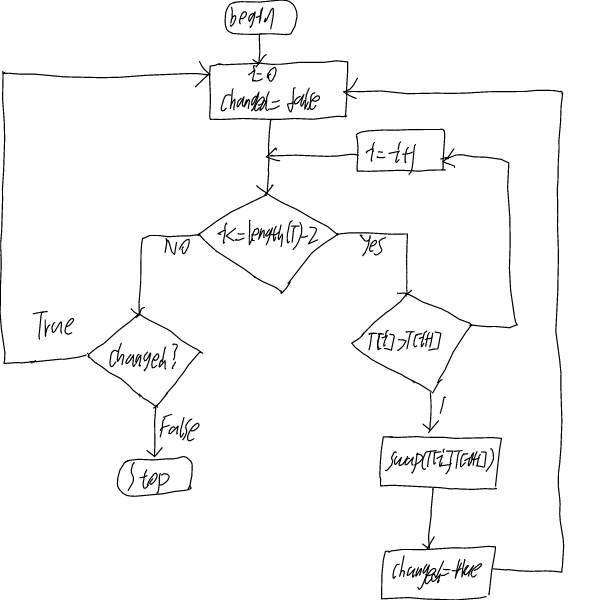 begin
i=0
changed=false
i=i+1
i<=length(T)-2
NO
Yes
True
changed?
T[i]>T[i+1]
False
Stop
swap(T[i],T[i+1])
changed=true